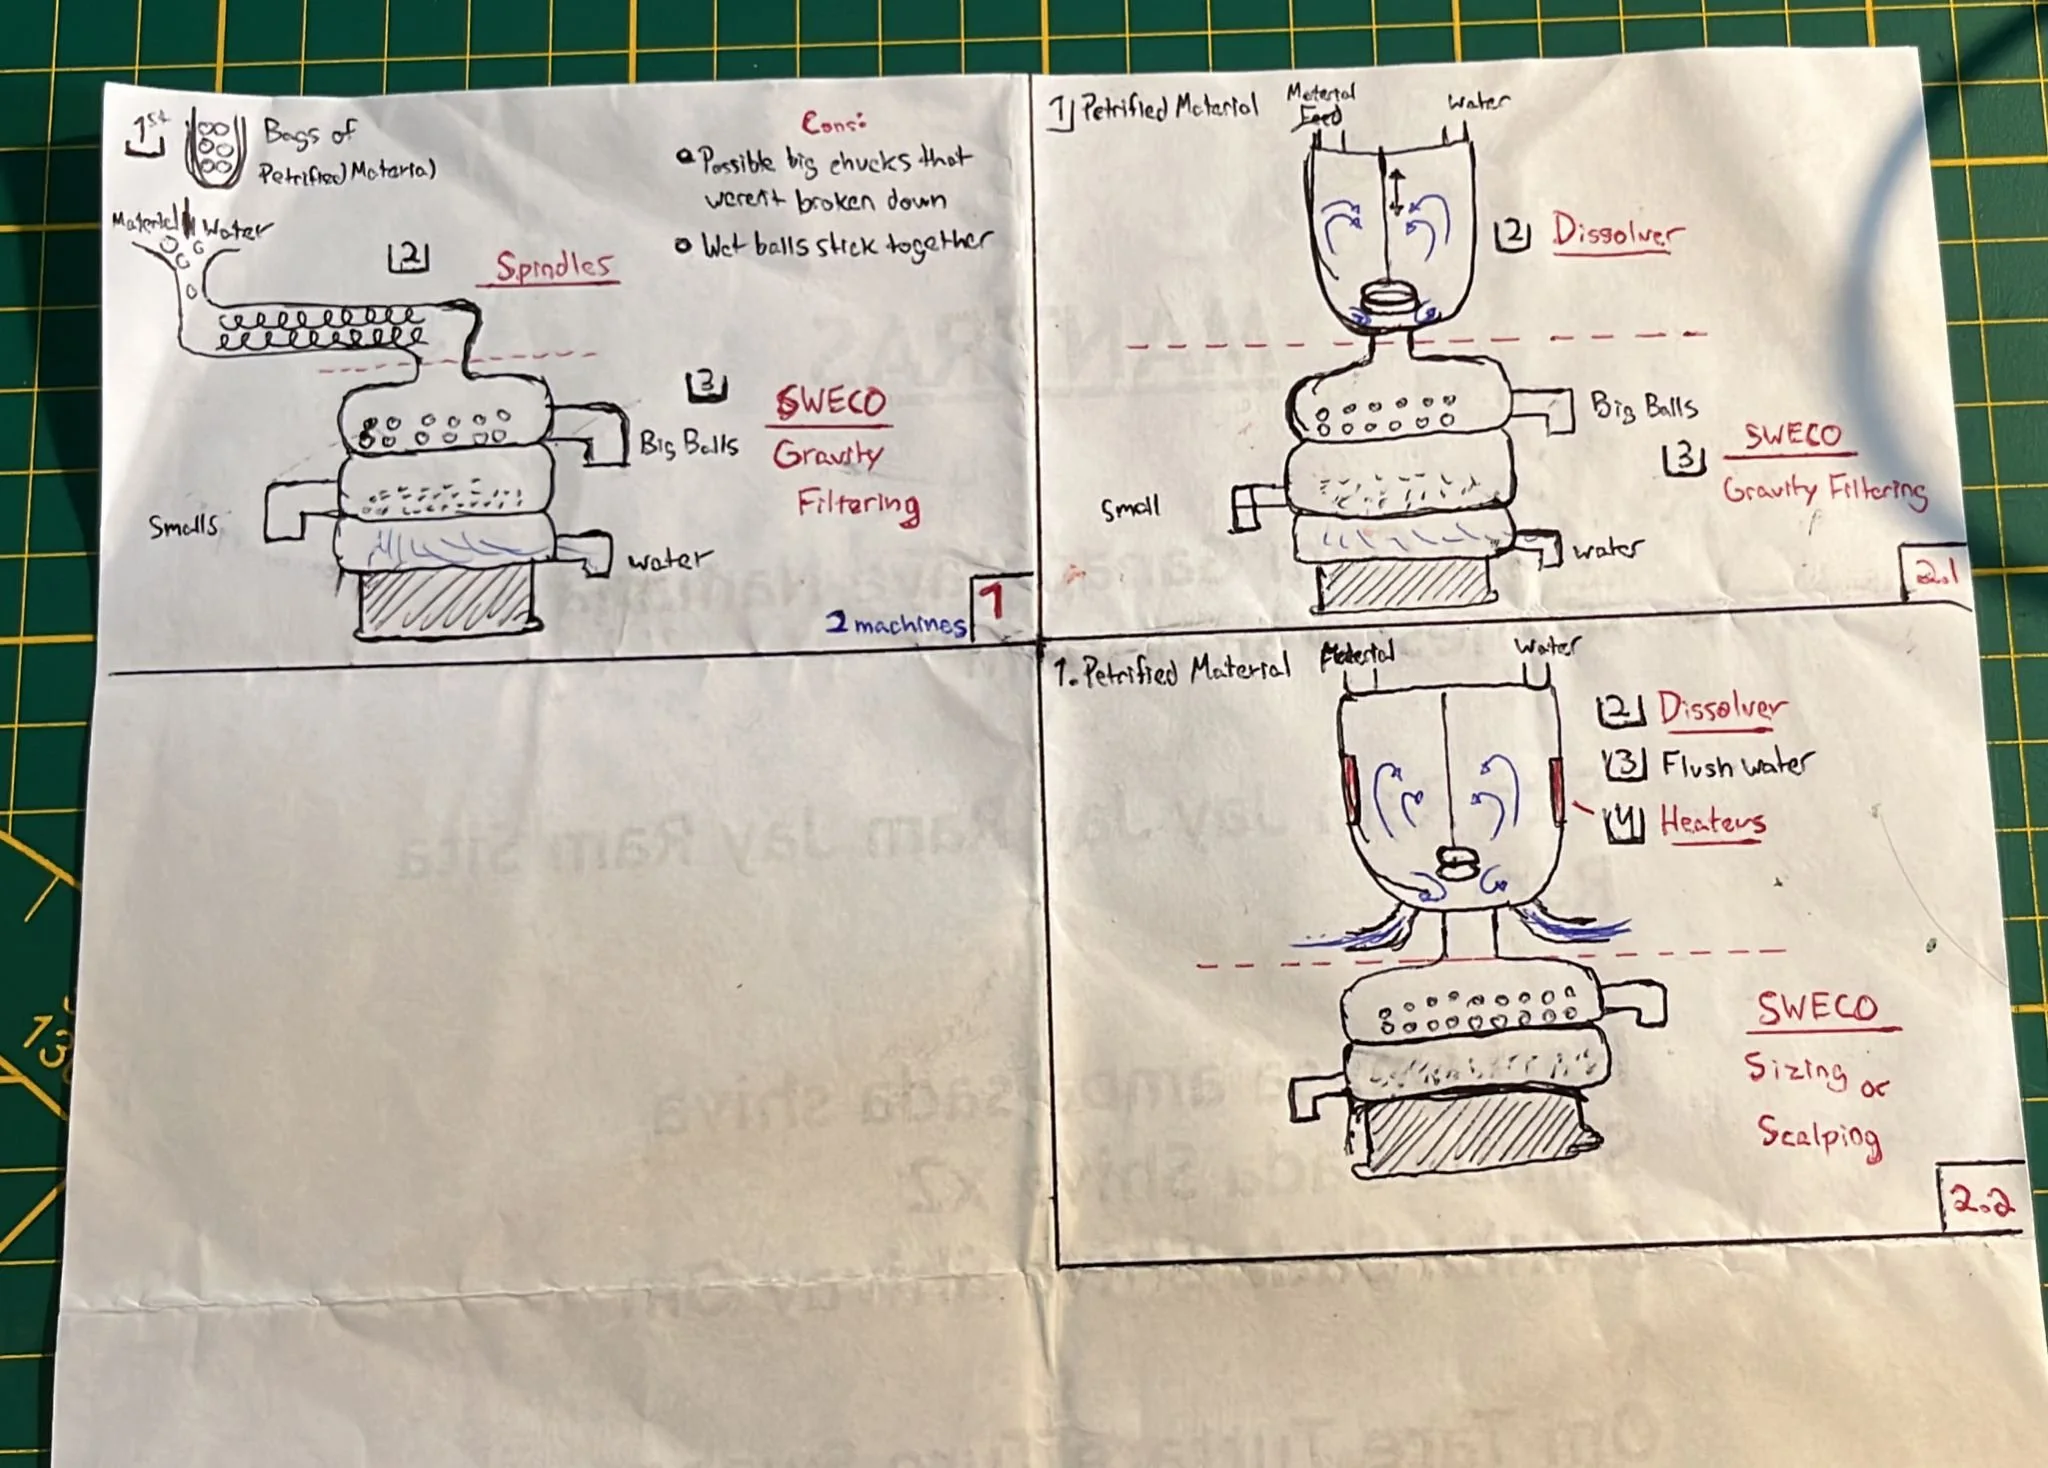 1st
Bags of
Petrified Material
Material
Water
2
Spindles
Cons:
Possible big chucks that
weren't broken down
Wet balls stick together
3
SWECO
Gravity
Filtering
Big Balls
Smalls
water
2 machines
1
1 Petrified Material
Material
Feed
Water
2 Dissolver
Big Balls
3
SWECO
Gravity Filtering
Small
water
2.1
1. Petrified Material
Material
Water
2 Dissolver
3 Flush water
4 Heaters
SWECO
Sizing or
Scalping
2.2
13